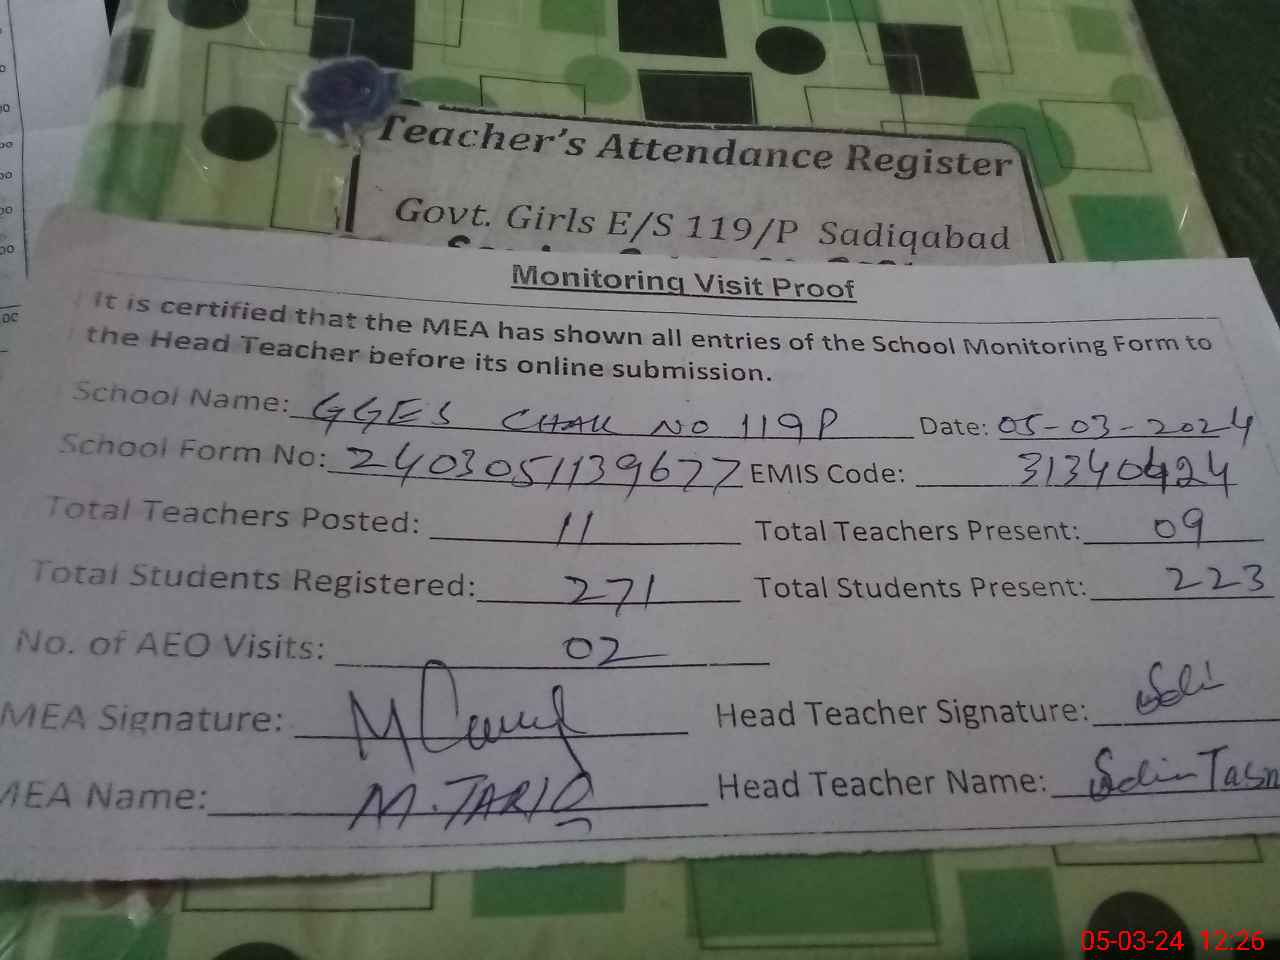 Teacher's Attendance Register
Govt. Girls E/S 119/P Sadiqabad
Monitoring Visit Proof
It is certified that the MEA has shown all entries of the School Monitoring Form to
the Head Teacher before its online submission.
School Name: GGES CHAK NO 119P Date: 05-03-2024
School Form No: 2403051139677 EMIS Code: 31340424
Total Teachers Posted: 11 Total Teachers Present: 09
Total Students Registered: 271 Total Students Present: 223
No. of AEO Visits: 02
MEA Signature: Head Teacher Signature:
MEA Name: M. TARIQ Head Teacher Name:
05-03-24 12:26